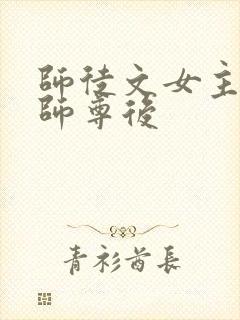 師徒文女主
師尊後
青衫酋長